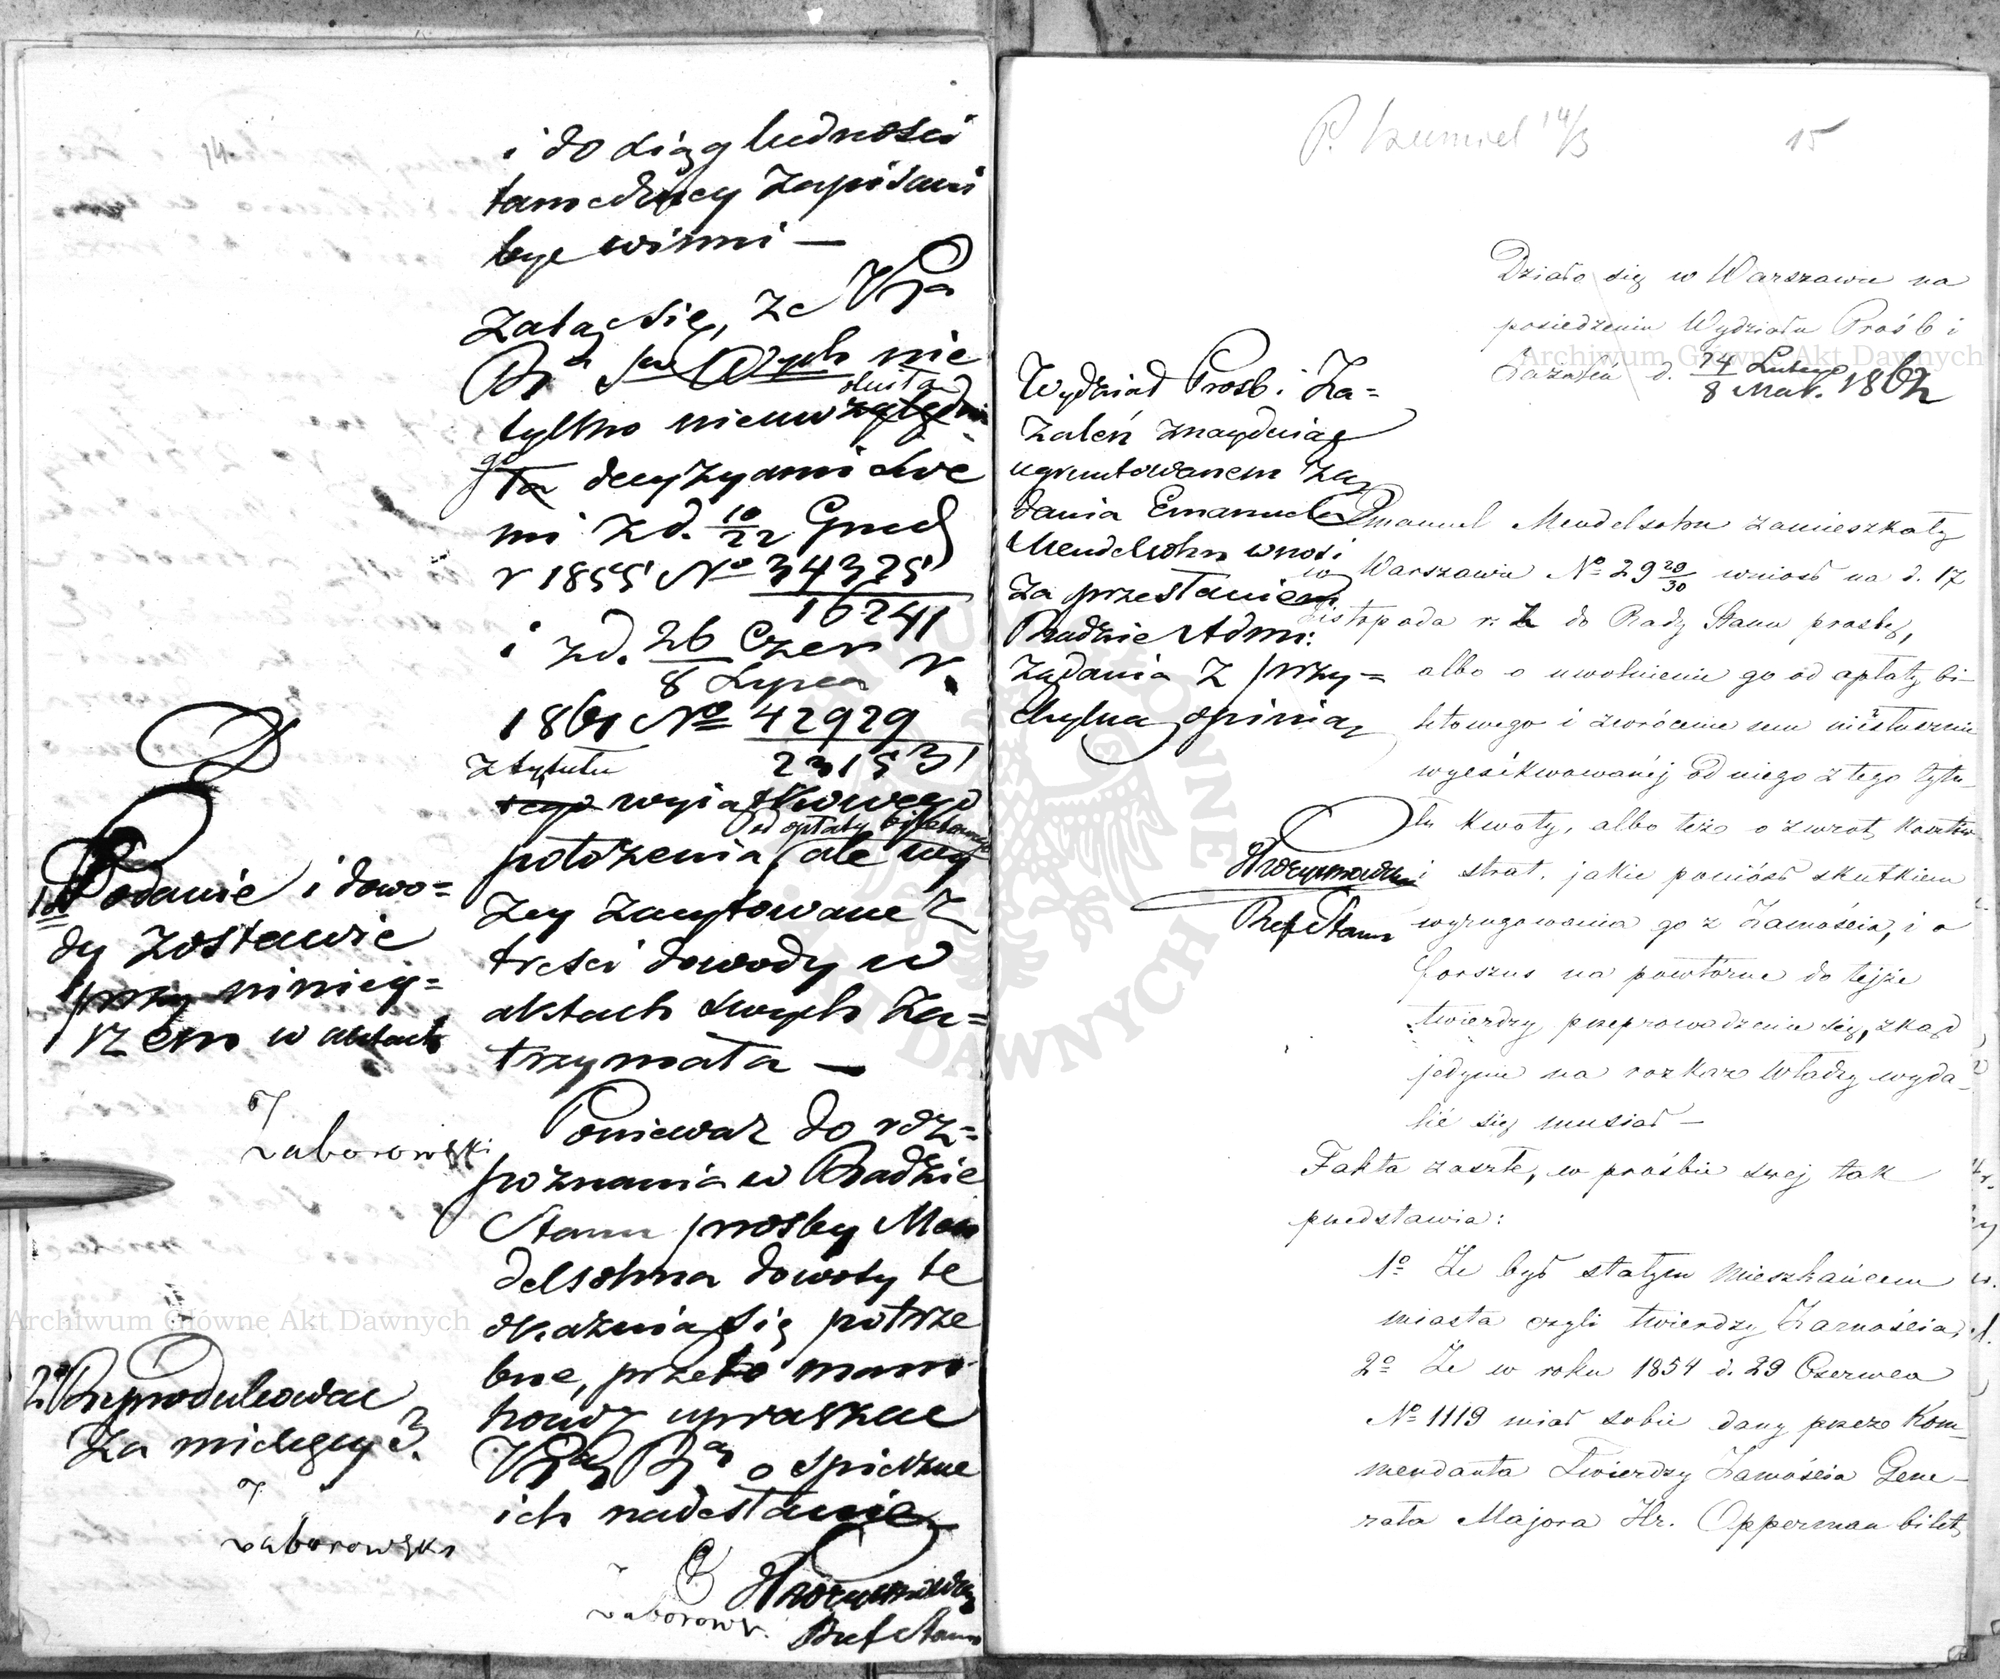 14
i do ksiąg ludności
tamedzney zapisani
być winni —
Żalą się, że
nie
tylko nie uwzględni
decyzyami swe
mi z d. 10/22 Grud
r 1855 Nº 34325/16241
i z d. 26 Czer/8 Lypca r.
1861 Nº 42929/23153
z tytułu wyiątkowego
od opłaty biletowego
położenia, ale wy
żey zacytowane z
treści dowody w
aktach swych za=
trzymała —
Ponieważ do roz=
poznania w Radzie
Stanu prośby Men
delsohna dowody te
okażuią się potrze
bne, przeto mam
honor upraszać
o spieszne
ich nadesłanie
Podanie i dowo=
dy zostawić
przy niniey=
szem w aktach
Zaborowski
2º Reprodukować
za miesięcy 3.
Zaborowski
Zaborows.
Ref Stanu
15
P. 14/3
Działo się w Warszawie na
posiedzeniu Wydziału Prośb i
Zażaleń d. 24 Lutego/8 Mar. 1862
Wydział Prośb i Za=
żaleń znayduiąc
ugruntowanem żą
dania Emanuela
Mendelsohn wnosi
za przesłaniem
Radzie Adm:
żądania z przy=
chylną opinią
Ref Stanu
Emanuel Mendelsohn zamieszkały
w Warszawie Nº 29 29/30 wniósł na d. 17
Listopada r. z. do Rady Stanu prośbę,
albo o uwolnienie go od opłaty bi—
letowego i zwrócenie mu niesłusznie
wyexekwowanéj od niego z tego tytu—
łu kwoty, albo też o zwrot kosztów
i strat, jakie poniósł skutkiem
wyrugowania go z Zamościa, i o
forszus na powtórne do tejże
twierdzy przeprowadzenie się, zkąd
jedynie na rozkaz Władzy wyda—
lić się musiał —
Fakta zaszłe, w prośbie swej tak
przedstawia:
1º Że był stałym mieszkańcem
miasta czyli twierdzy Zamościa,
2º Że w roku 1854 d. 29 Czerwca
Nº 1119 miał sobie dany przez Kom—
mendanta Twierdzy Zamościa Gene—
rała Majora Hr. Opperman bilet,
Archiwum Główne Akt Dawnych
Archiwum Główne Akt Dawnych